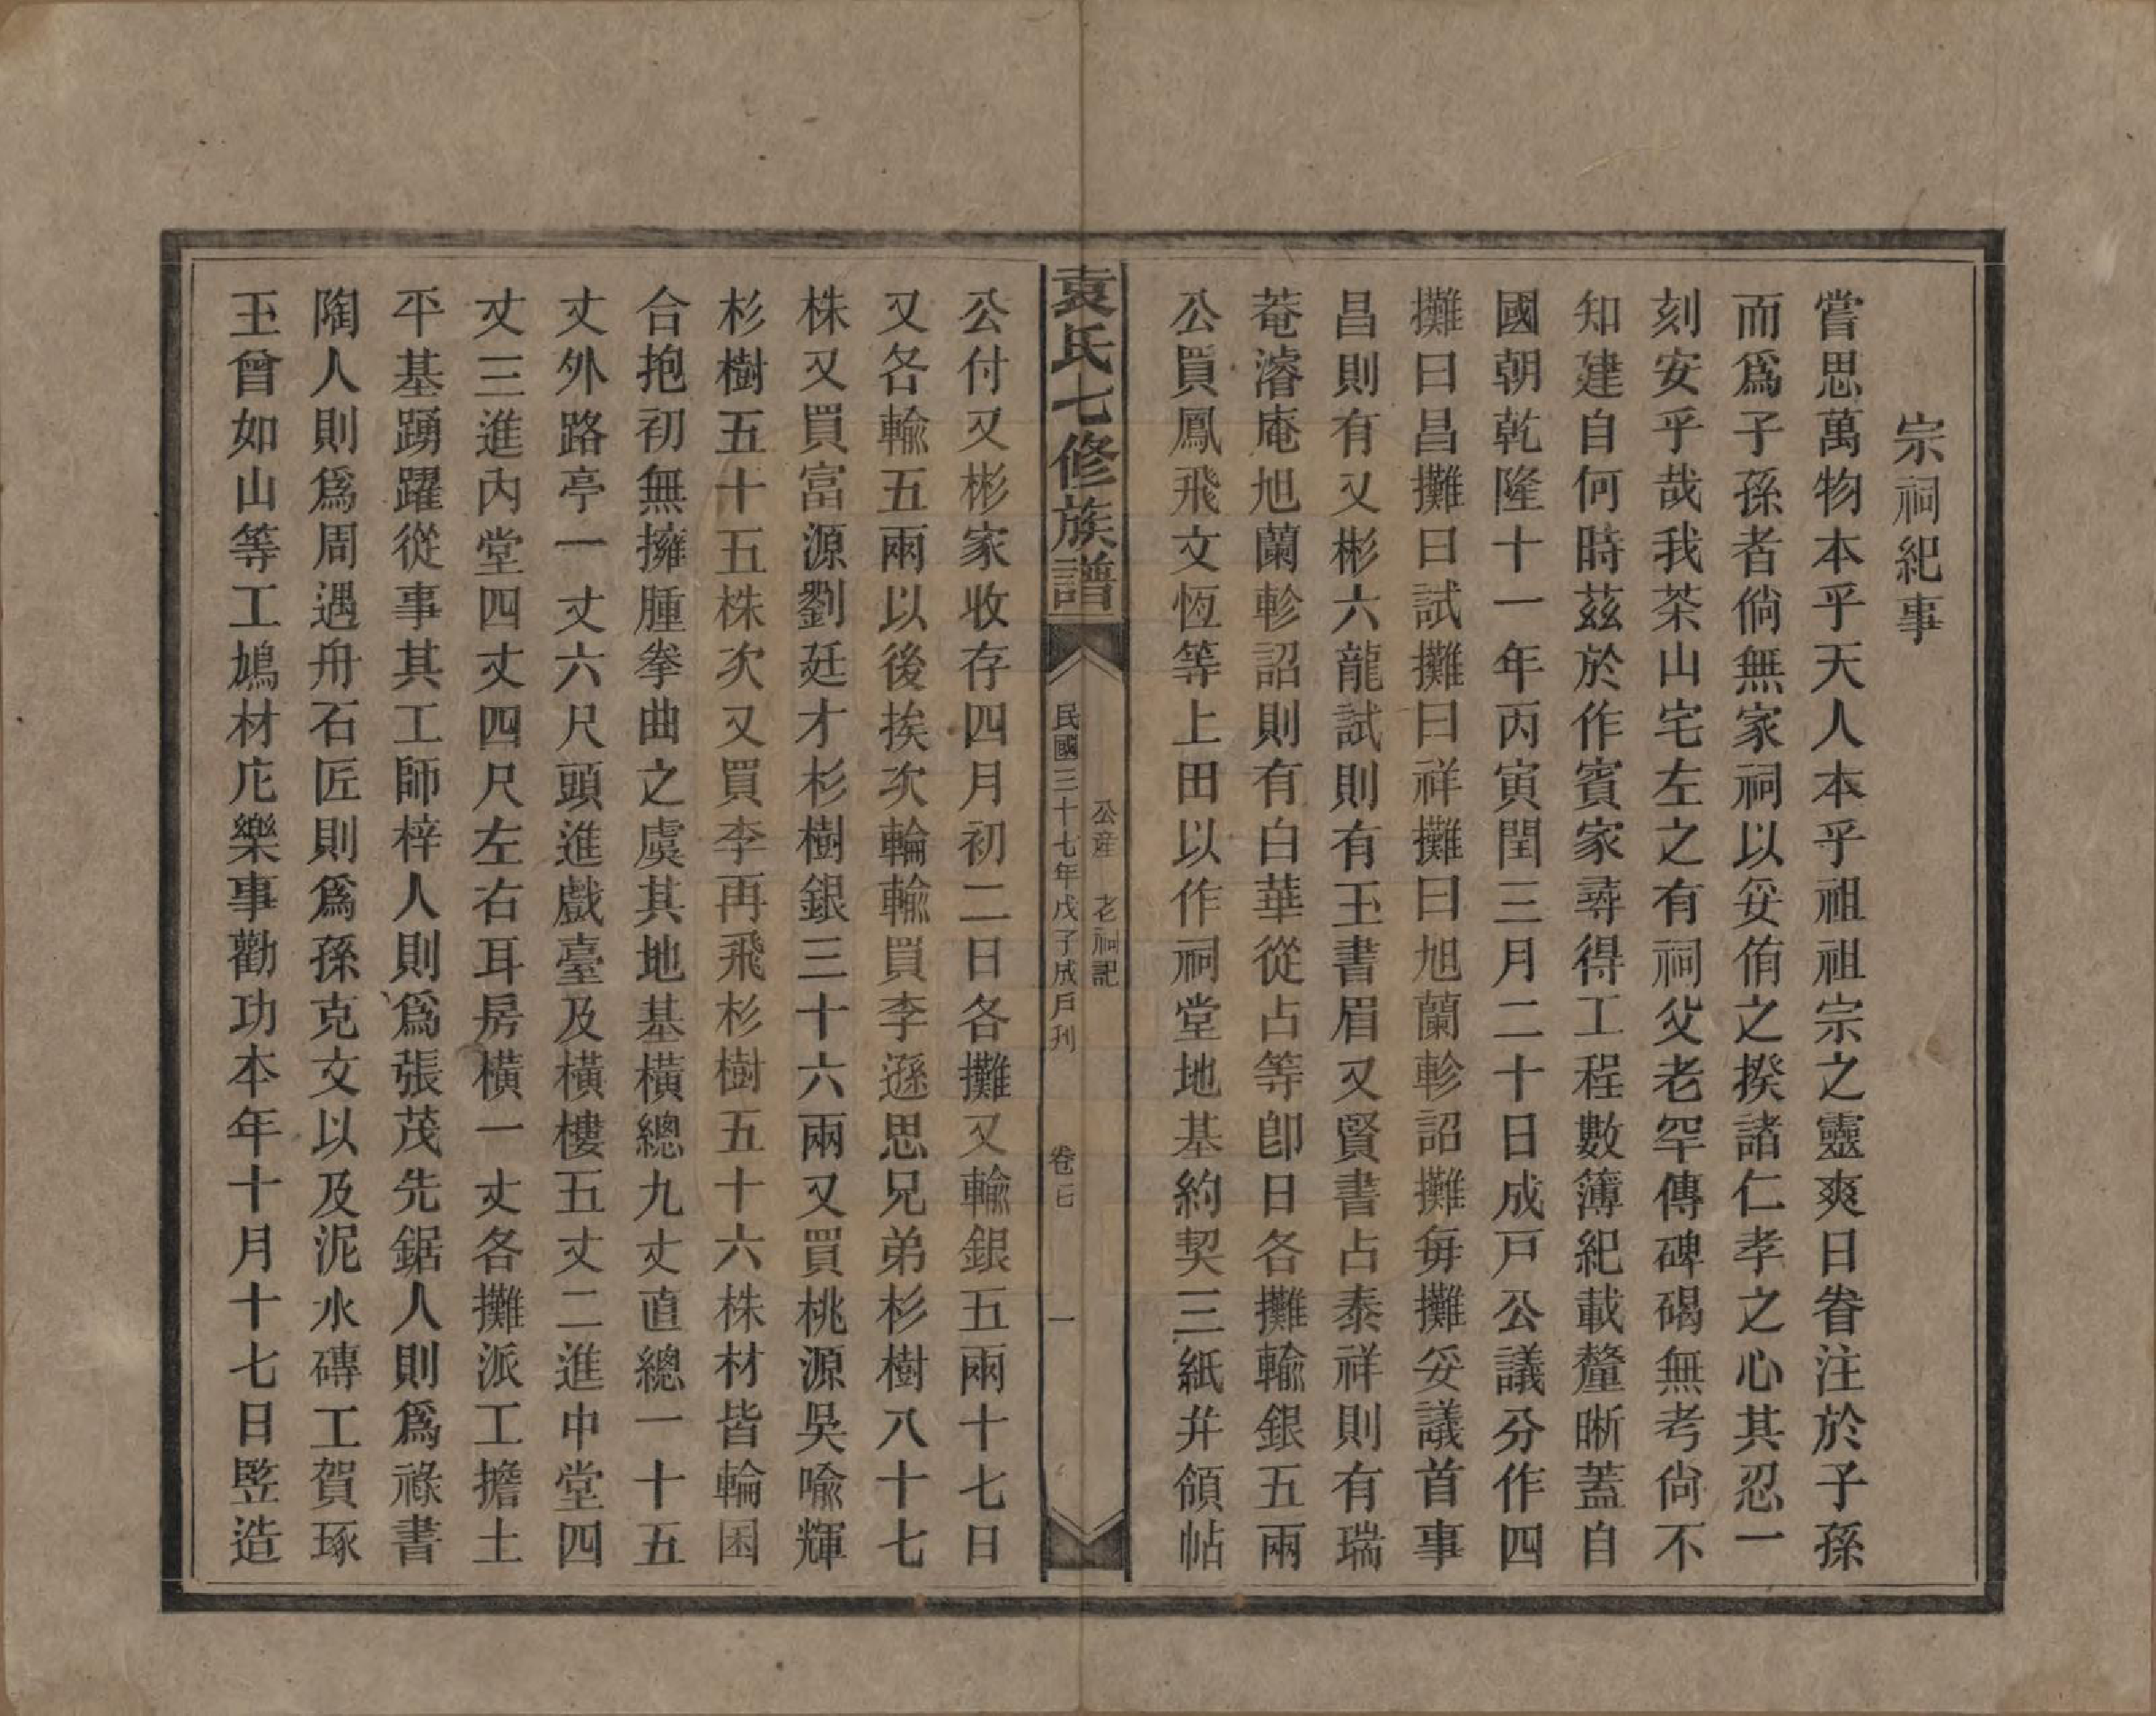 宗祠紀事
嘗思萬物本乎天人本乎祖祖宗之靈爽日眷注於子孫
而爲子孫者倘無家祠以妥侑之揆諸仁孝之心其忍一
刻安乎哉我茶山宅左之有祠父老罕傳碑碣無考尙不
知建自何時茲於作賓家尋得工程數簿紀載釐晰蓋自
國朝乾隆十一年丙寅閏三月二十日成戸公議分作四
攤曰昌攤曰試攤曰祥攤曰旭蘭軫詔攤每攤妥議首事
昌則有又彬六龍試則有玉書眉又賢書占泰祥則有瑞
菴濬庵旭蘭軫詔則有白華從占等卽日各攤輸銀五兩
公買鳳飛文恆等上田以作祠堂地基約契三紙幷領帖
袁氏七修族譜
公產 老祠記
民國三十七年戊子成戸刊
卷 一
公付又彬家收存四月初二日各攤又輸銀五兩十七日
又各輸五兩以後挨次輪輸買李遜思兄弟杉樹八十七
株又買富源劉廷才杉樹銀三十六兩又買桃源吳喩輝
杉樹五十五株次又買李再飛杉樹五十六株材皆輪囷
合抱初無擁腫拳曲之虞其地基橫總九丈直總一十五
丈外路亭一丈六尺頭進戲臺及橫樓五丈二進中堂四
丈三進內堂四丈四尺左右耳房橫一丈各攤派工擔土
平基踴躍從事其工師梓人則爲張茂先鋸人則爲祿書
陶人則爲周遇舟石匠則爲孫克文以及泥水磚工賀琢
玉曾如山等工鳩材庀樂事勸功本年十月十七日竪造